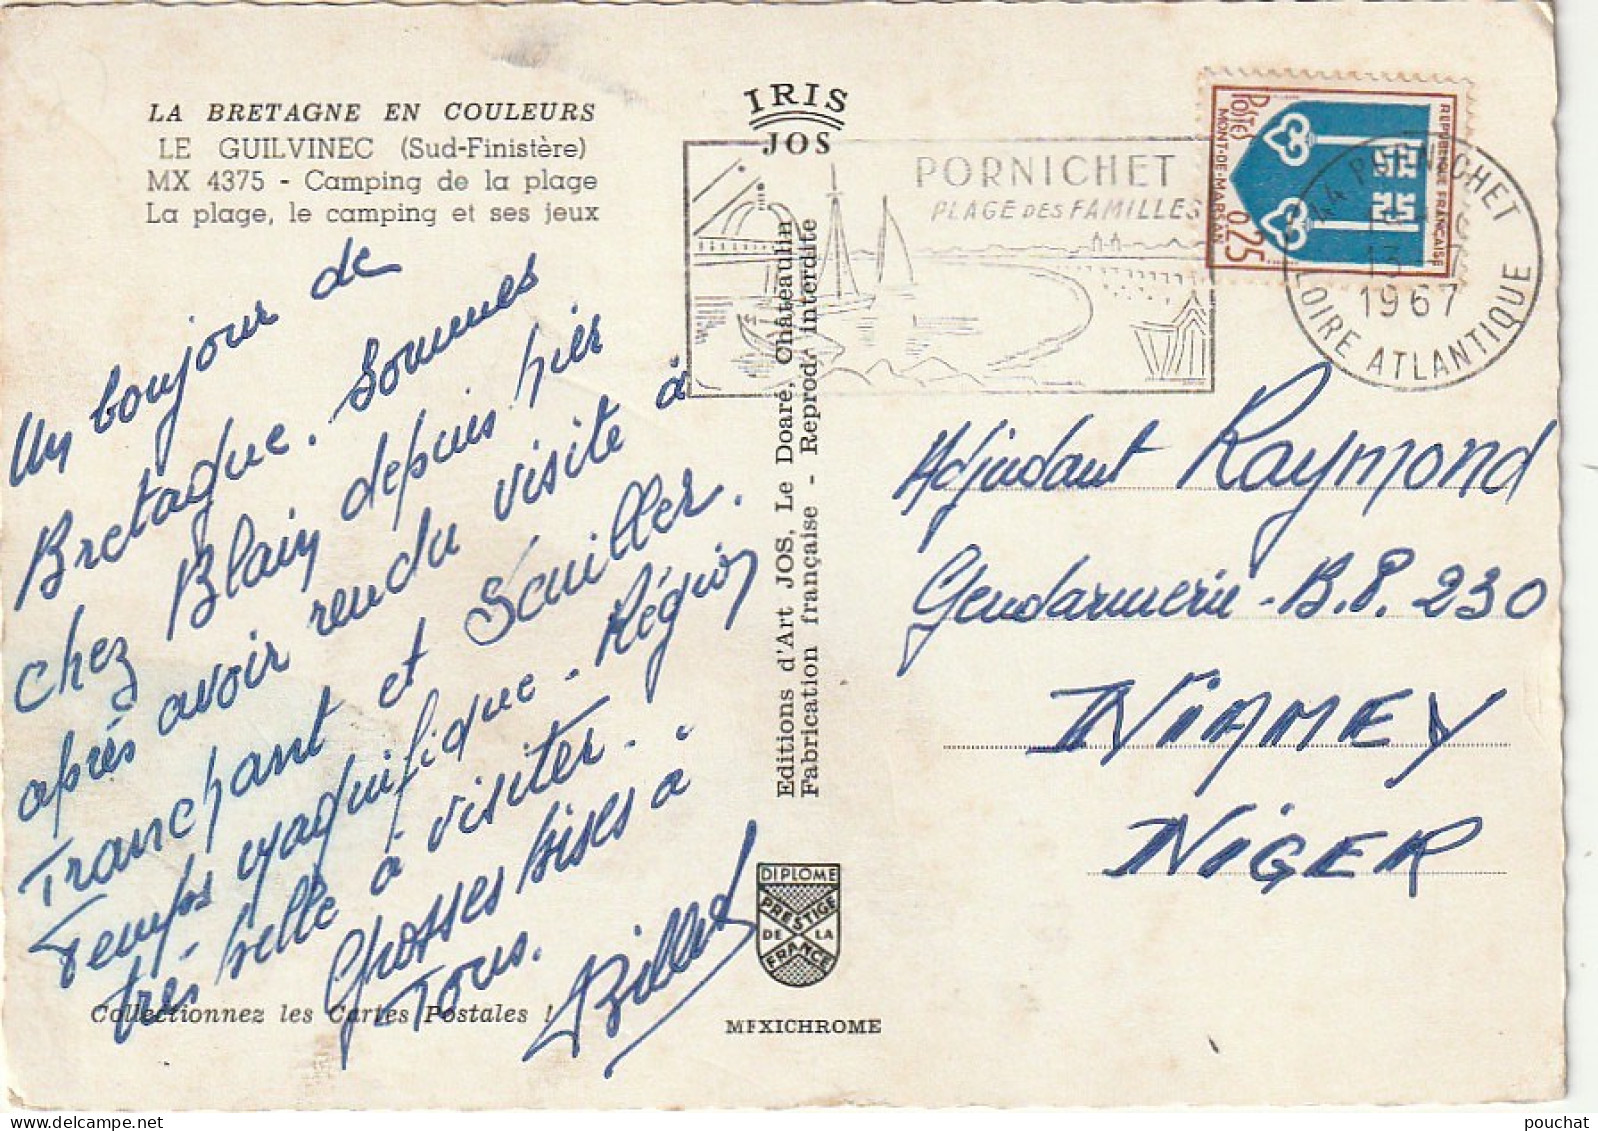 LA BRETAGNE EN COULEURS
LE GUILVINEC (Sud-Finistère)
MX 4375 - Camping de la plage
La plage, le camping et ses jeux
Un bonjour de
Bretagne. Sommes
chez Blain depuis hier
après avoir rendu visite à
Tranchant et Scuiller.
Temps magnifique - Région
très belle à visiter -.
Grosses bises à
Tous.
Billed
Collectionnez les Cartes Postales !
IRIS
JOS
Editions d'Art JOS, Le Doaré, Châteaulin
Fabrication française - Reprod. interdite
DIPLOME
PRESTIGE
DE LA
FRANCE
MEXICHROME
PORNICHET
PLAGE DES FAMILLES
POSTES
MONT-DE-MARSAN
0,25
REPUBLIQUE FRANÇAISE
44 PORNICHET
13
1967
LOIRE ATLANTIQUE
Adjudant Raymond
Gendarmerie - B.P. 230
NIAMEY
NIGER
pouchat